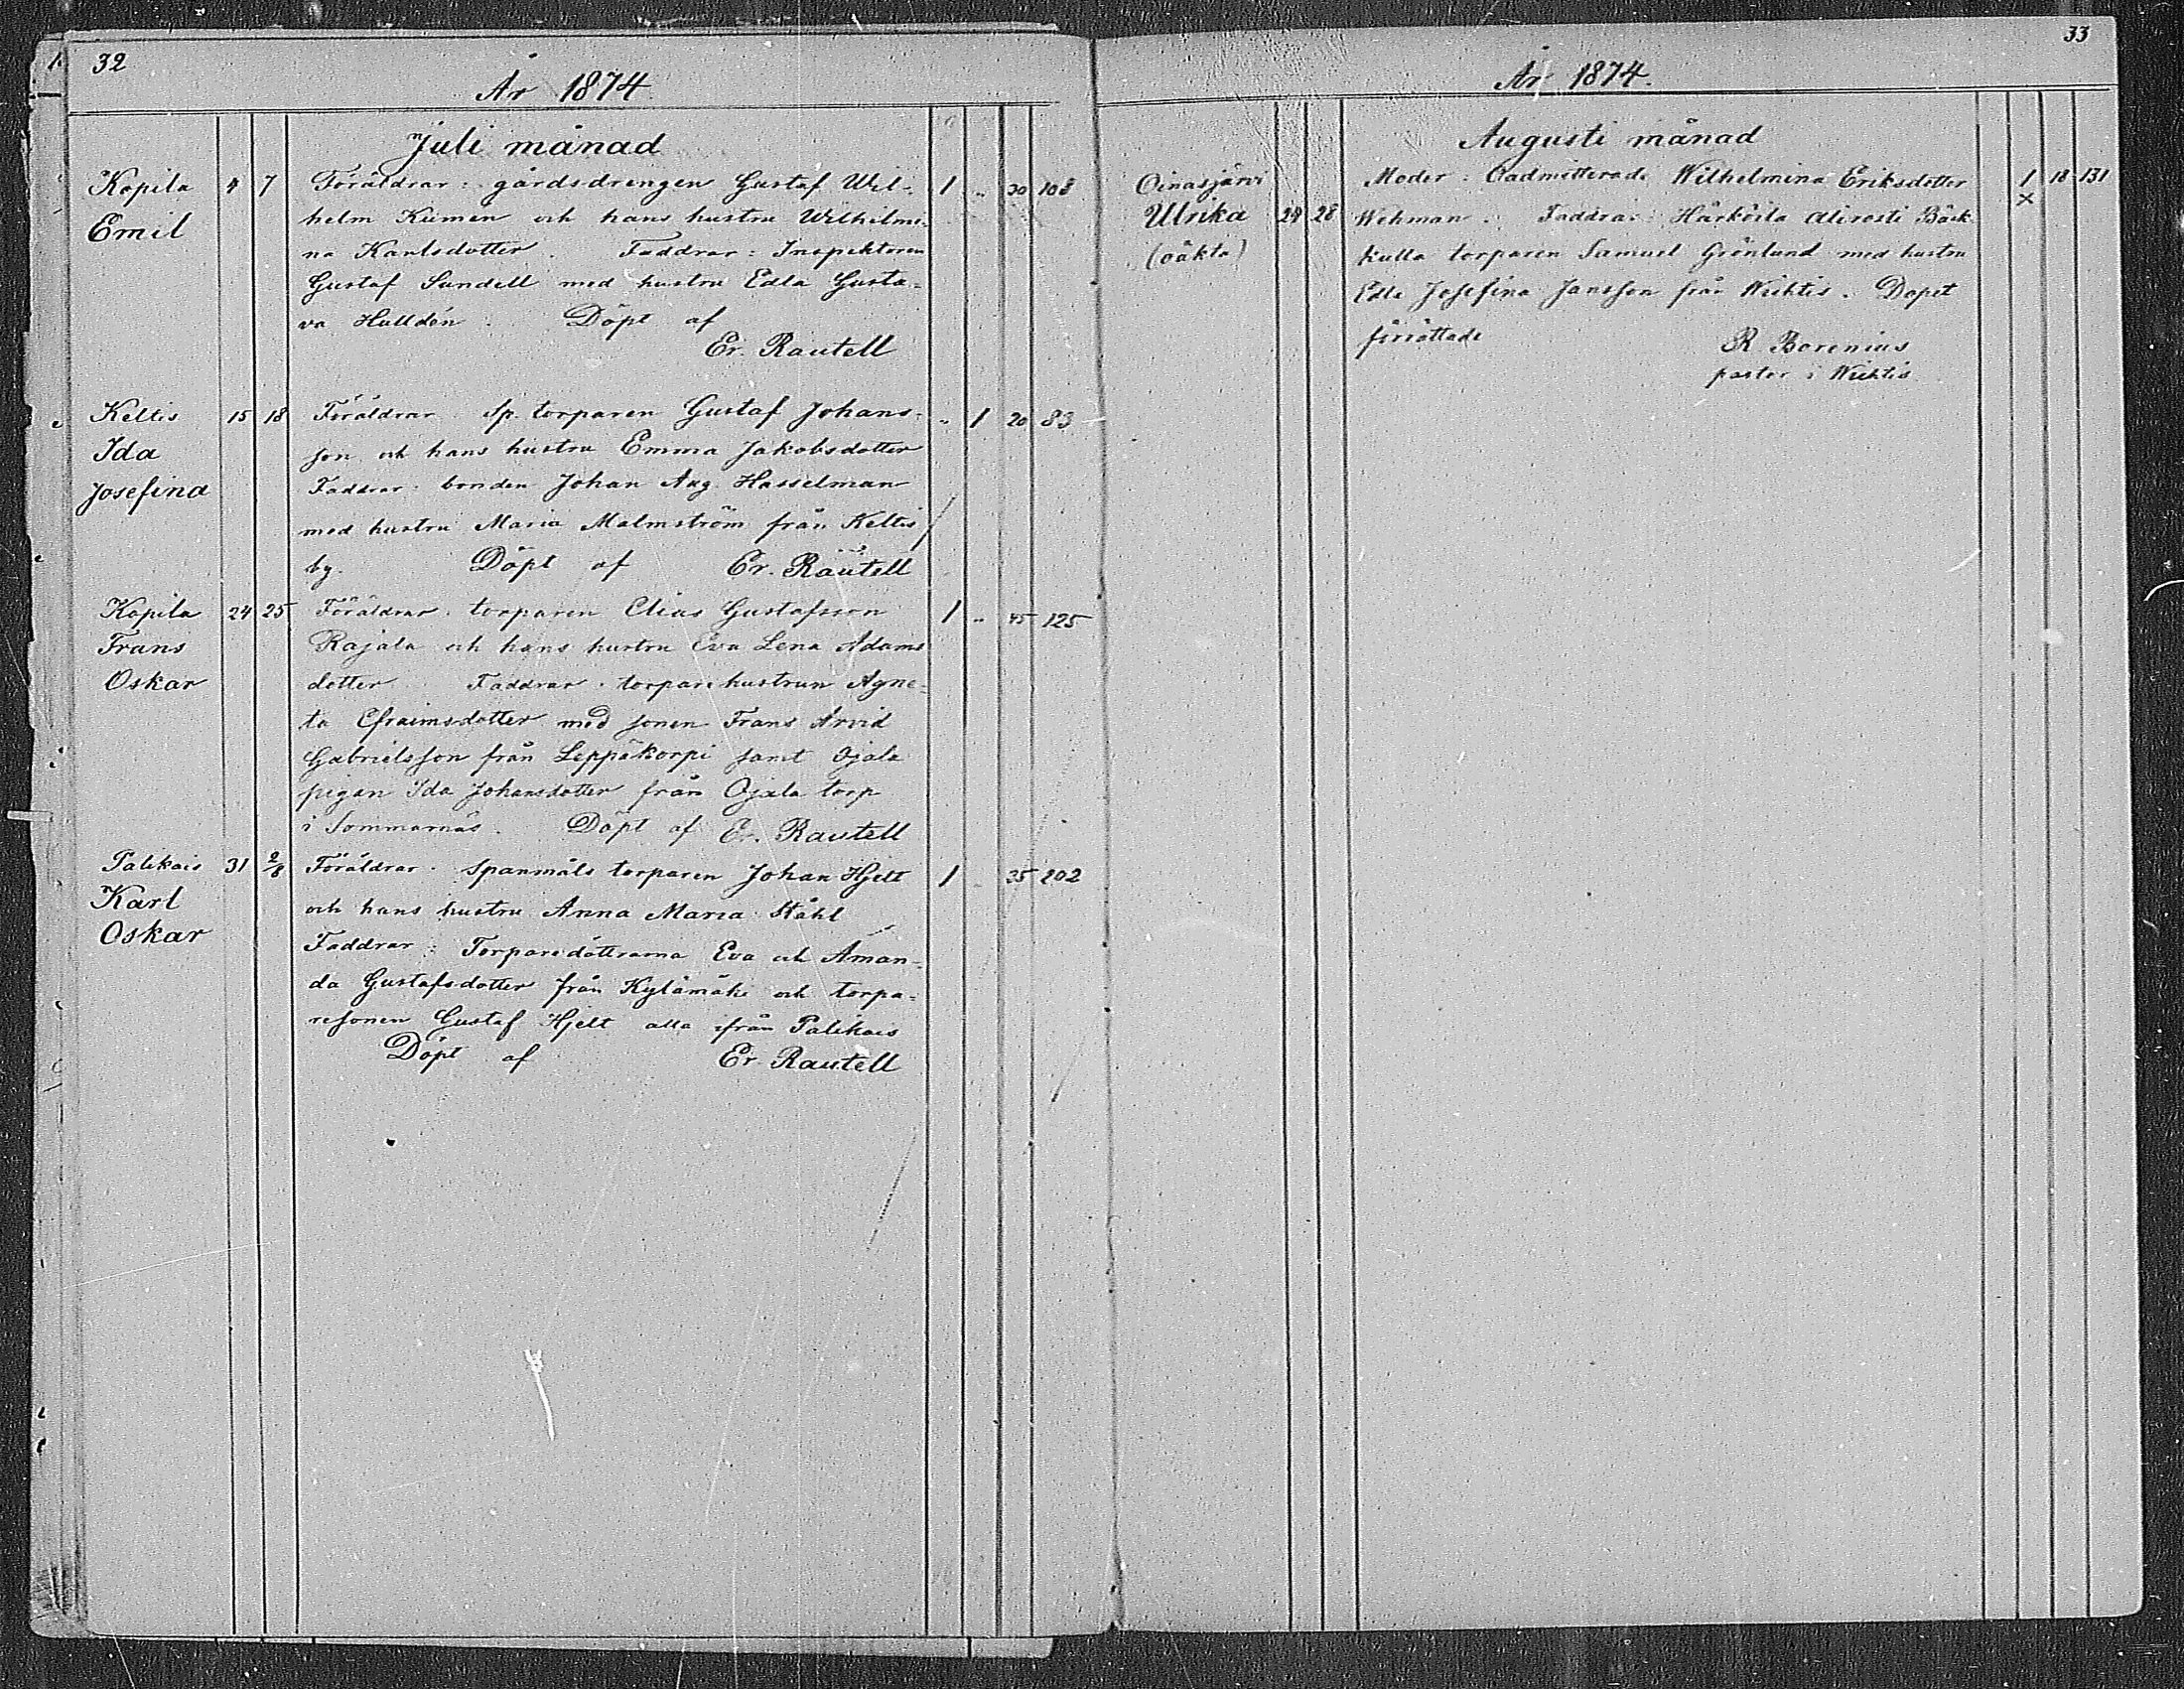 32
År 1874
Juli månad
Kopila 4 7 Föräldrar: gårdsdrengen Gustaf Wil- 1 „ 30 108
Emil helm Kumen och hans hustru Wilhelmi-
na Karlsdotter. Faddrar: Inspektoren
Gustaf Sundell med hustru Edla Gusta-
va Hulldén. Döpt af
Er. Rautell
Keltis 15 18 Föräldrar Sp. torparen Gustaf Johans- „ 1 20 83
Ida son och hans hustru Emma Jakobsdotter
Josefina Faddrar: bonden Johan Aug. Hasselman
med hustru Maria Malmström från Keltis
by. Döpt af Er. Rautell
Kopila 24 25 Föräldrar: torparen Elias Gustafsson 1 „ 45 125
Frans Rajala och hans hustru Eva Lena Adams
Oskar dotter Faddrar: torparehustrun Agne-
ta Efraimsdotter med sonen Frans Arvid
Gabrielsson från Leppäkorpi samt Ojala
pigan Ida Johansdotter från Ojala torp
i Sommarnäs. Döpt af Er. Rautell
Palikais 31 2/8 Föräldrar: Spanmåls torparen Johan Hjelt 1 „ 35 202
Karl och hans hustru Anna Maria Ståhl
Oskar Faddrar: Torparedöttrarna Eva och Aman-
da Gustafsdotter från Kylämäki och torpa-
resonen Gustaf Hjelt alla från Palikais
Döpt af Er. Rautell
33
År 1874.
Augusti månad
Oinasjärvi Moder: Oadmitterade Wilhelmina Eriksdotter 1 18 131
Ulrika 24 28 Wehman. Faddrar: Härköila Alirosti Bäck- ×
(oäkta) kulla torparen Samuel Grönlund med hustru
Edla Josefina Jansson från Wichtis. Dopet
förrättade R Borenius
pastor i Wichtis